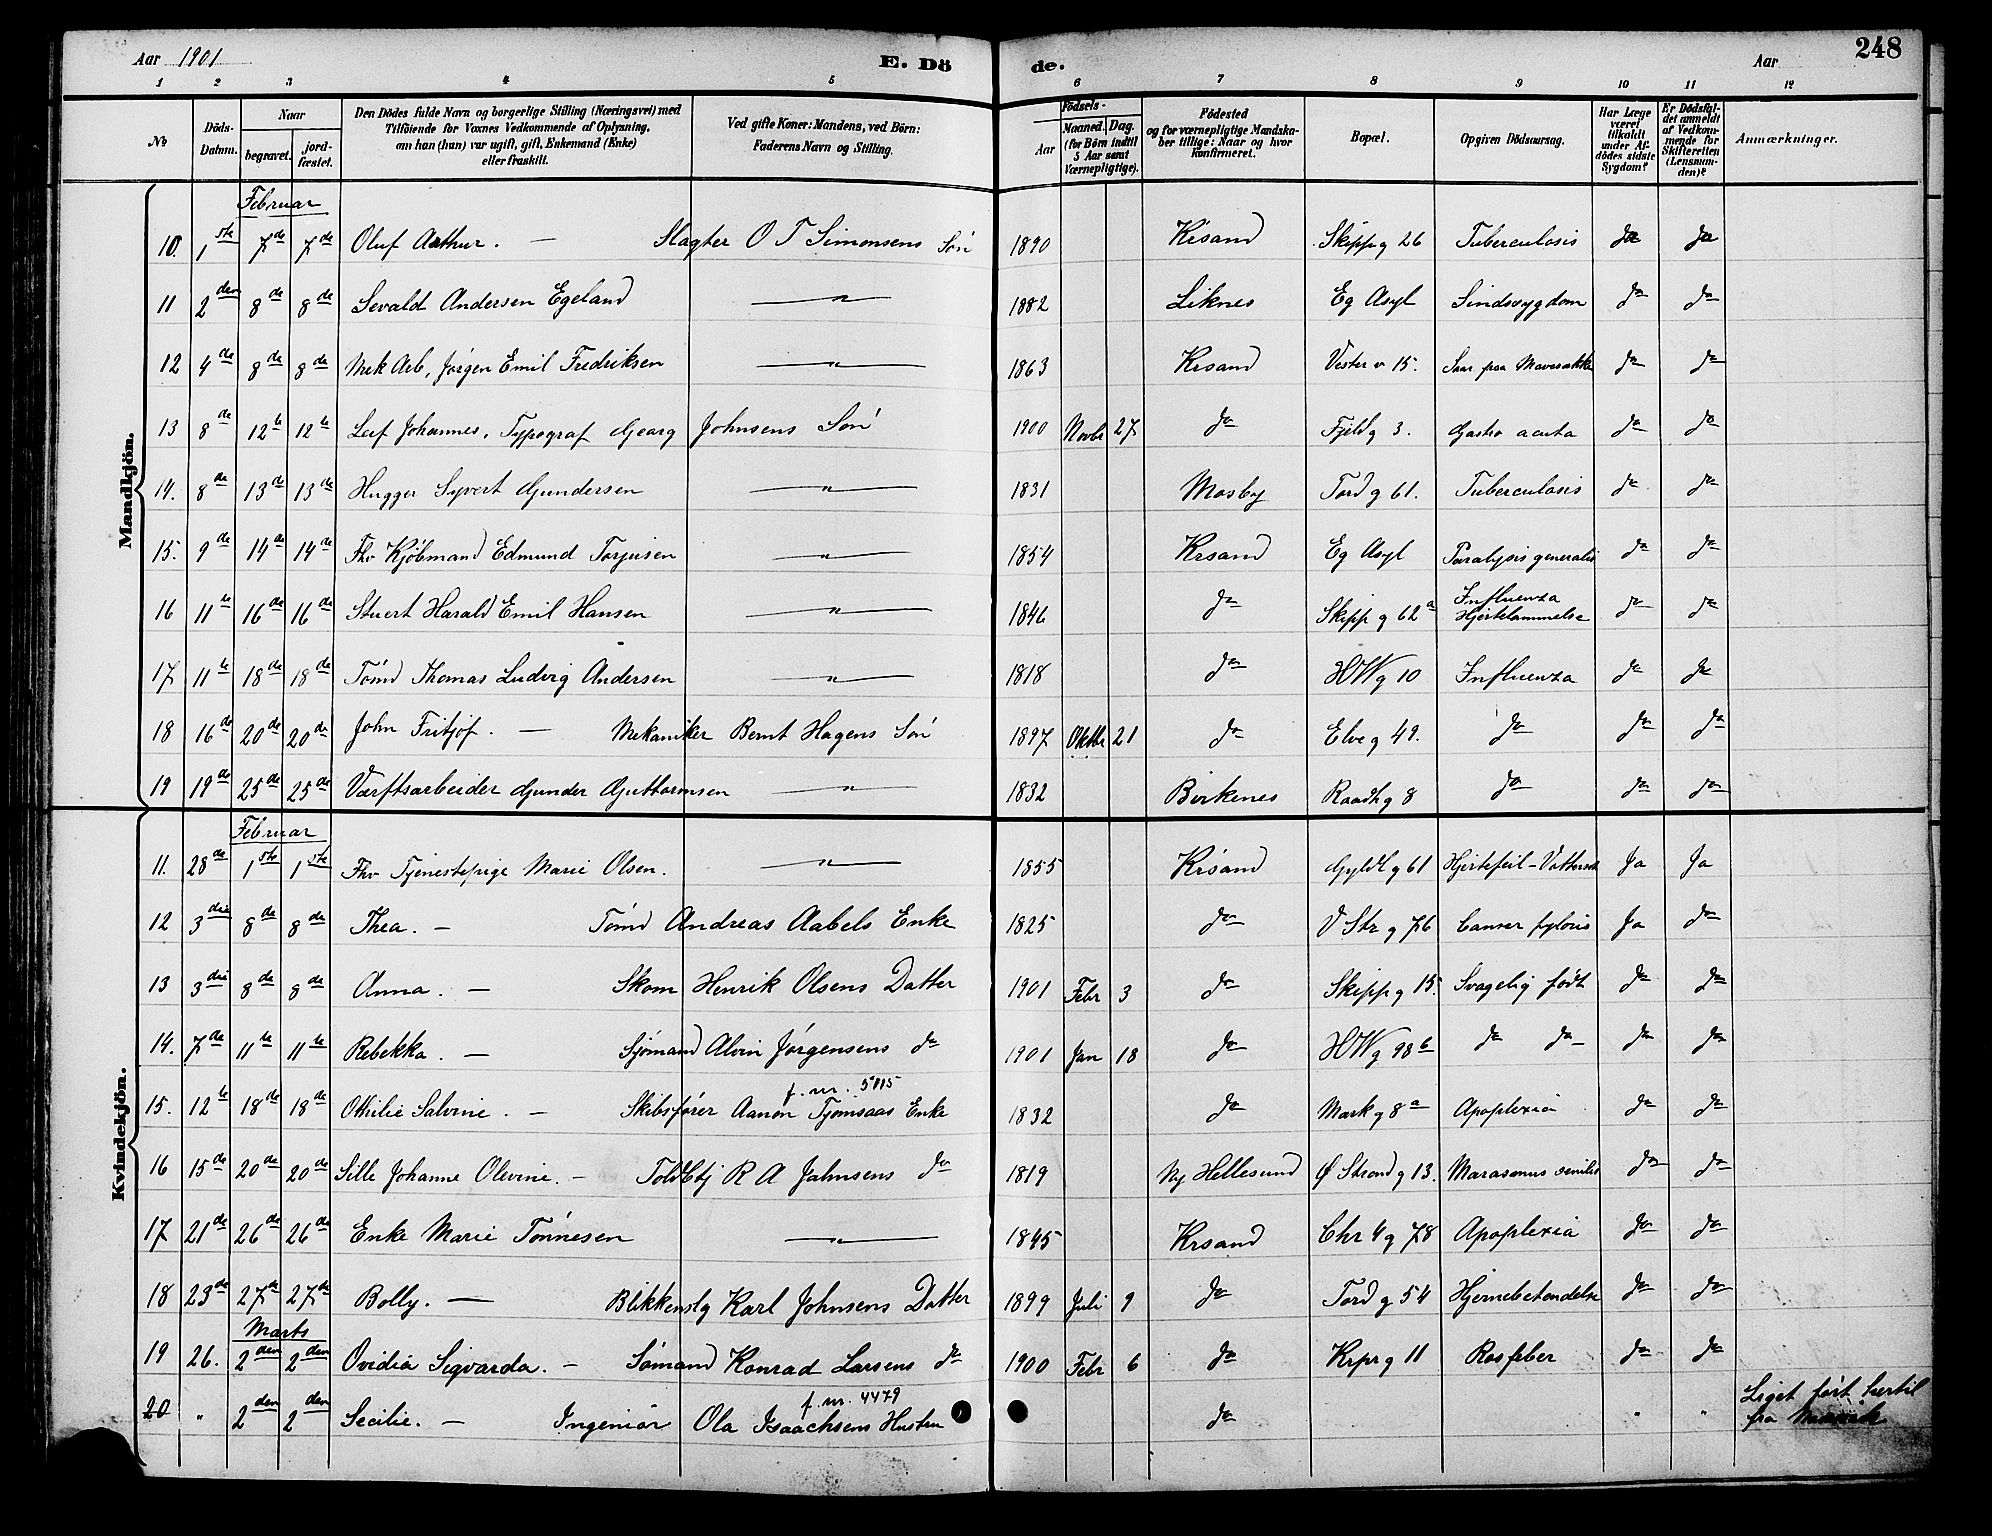 Aar 1901
E. Dö
de.
Aar
248
1 2 3 4 5 6 7 8 9 10 11 12
No
Döds-Datum.
Naar
begravet.
jord-fæstet.
Den Dödes fulde Navn og borgerlige Stilling (Næringsvei) med Tilföiende for Voxnes Vedkommende af Oplysning, om han (hun) var ugift, gift, Enkemand (Enke) eller fraskilt.
Ved gifte Koner: Mandens, ved Börn: Faderens Navn og Stilling.
Födsels-
Aar
Maaned. Dag.
(for Börn indtil 5 Aar samt Værnepligtige).
Födested og for værnepligtige Mandskaber tillige: Naar og hvor konfirmeret.
Bopæl.
Opgiven Dödsaarsag.
Har Læge været tilkaldt under Afdödes sidste Sygdom?
Er Dödsfaldet anmeldt af Vedkommende for Skifteretten (Lensmanden)?
Anmærkninger.
Mandkjön.
Februar
10. 1ste 7de 7de Oluf Arthur. — Slagter O T Simonsens Søn 1890 Krsand Skippg 26 Tuberculosis Ja Ja
11 2den 8de 8de Sevald Andersen Egeland — " — 1882 Liknes Eg Asyl Sindssygdom do do
12 4de 8de 8de Mek Arb, Jørgen Emil Fredriksen — " — 1863 Krsand Vester v 15. Saar paa Mavesækken do do
13 8de 12te 12te Leif Johannes, Typograf Georg Johnsens Søn 1900 Novbr 27 do Fjeldg 3. Gastro acuta do do
14. 8de 13de 13de Hugger Syvert Gundersen — " — 1831 Mosby Tordg 61. Tuberculosis do do
15. 9de 14de 14de Fhv Kjøbmand Edmund Torjusen — " — 1854 Krsand Eg Asyl Paralysis generalis do do
16 11te 16de 16de Stuert Harald Emil Hansen — " — 1846 do Skippg 62a Influenza Hjertelammelse do do
17 11te 18de 18de Tømd Thomas Ludvig Andersen — " — 1818 do HWg 10 Influenza do do
18 16de 20de 20de John Fritjof. — Mekaniker Bernt Hagens Søn 1897 Oktbr 21 do Elveg 49. do do do
19 19de 25de 25de Værftsarbeider Gunder Guttormsen — " — 1832 Birkenes Raadhg 8 do do do
Kvindekjön.
Februar
11. 28de 1ste 1ste Fhv Tjenestepige Marie Olsen. — " — 1855 Krsand Gyldlg 61 Hjertefeil - Ja Ja
12 3die 8de 8de Thea. — Tømd Andreas Aabels Enke 1825 do V Strg 76 Cancer pylori Ja do
13 3die 8de 8de Anna. — Skom Henrik Olsens Datter 1901 Febr 3 do Skippg 15. Svagelig født do do
14. 7de 11te 11te Rebekka. — Sjømand Alvin Jørgensens do 1901 Jan 18 do HWg 98b do do do do
f. nr. 5115
15. 12te 18de 18de Othilie Salvine. — Skibsfører Aanon Tjomsaas Enke 1832 do Markg 8a Apoplexia do do
16 15de 20de 20de Sille Johanne Olevine. — Toldbtj R A Jahnsens do 1819 Ny Hellesund Ø Strandg 13. Marasmus senilis do do
17 21de 26de 26de Enke Marie Tønnesen — " — 1845 Krsand Chr 4g 78 Apoplexia do do
18 23de 27de 27de Bolly. — Blikkenslg Karl Johnsens Datter 1899 Juli 9 do Tordg 54 Hjernebetendelse do do
Marts
19 26. 2den 2den Ovidia Sigvarda. — Sømand Konrad Larsens do 1900 Febr 6 do Krprg 11 Rosfeber do do
f. nr. 4479
20 " 2den 2den Secilie. — Ingeniør Ola Isaachsens Hustru do " " Liget ført hertil fra